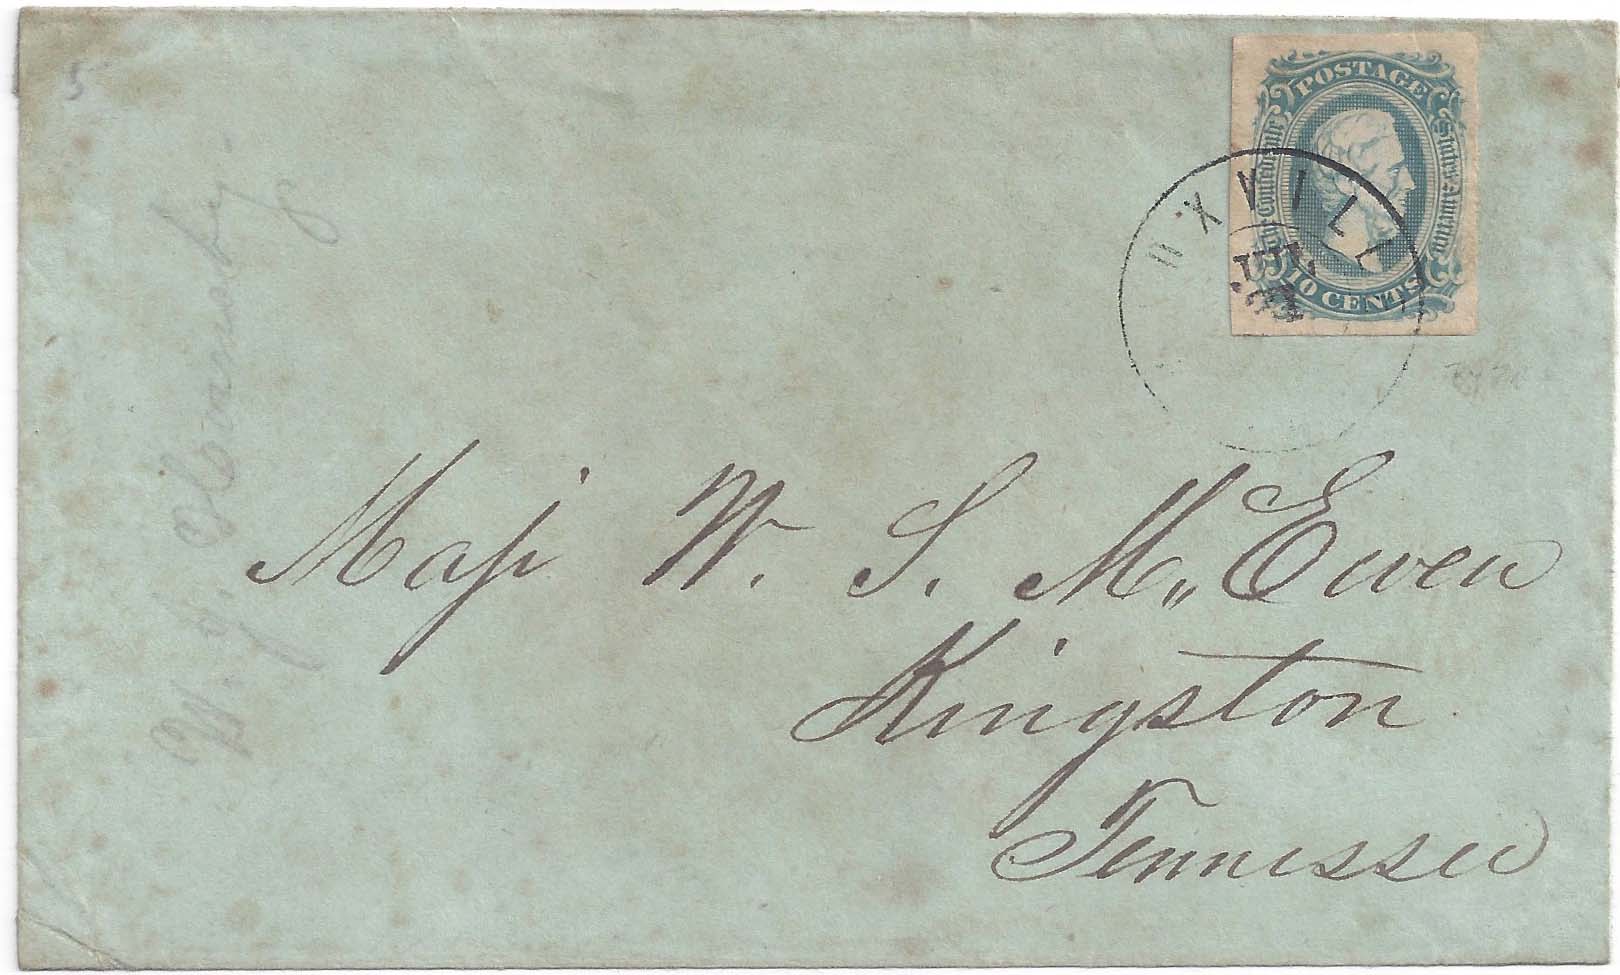 5
POSTAGE
The Confederate
States of America
10 CENTS
OXVILL
JUL
Maj W. S. M,,Ewen
Kingston
Tennessee